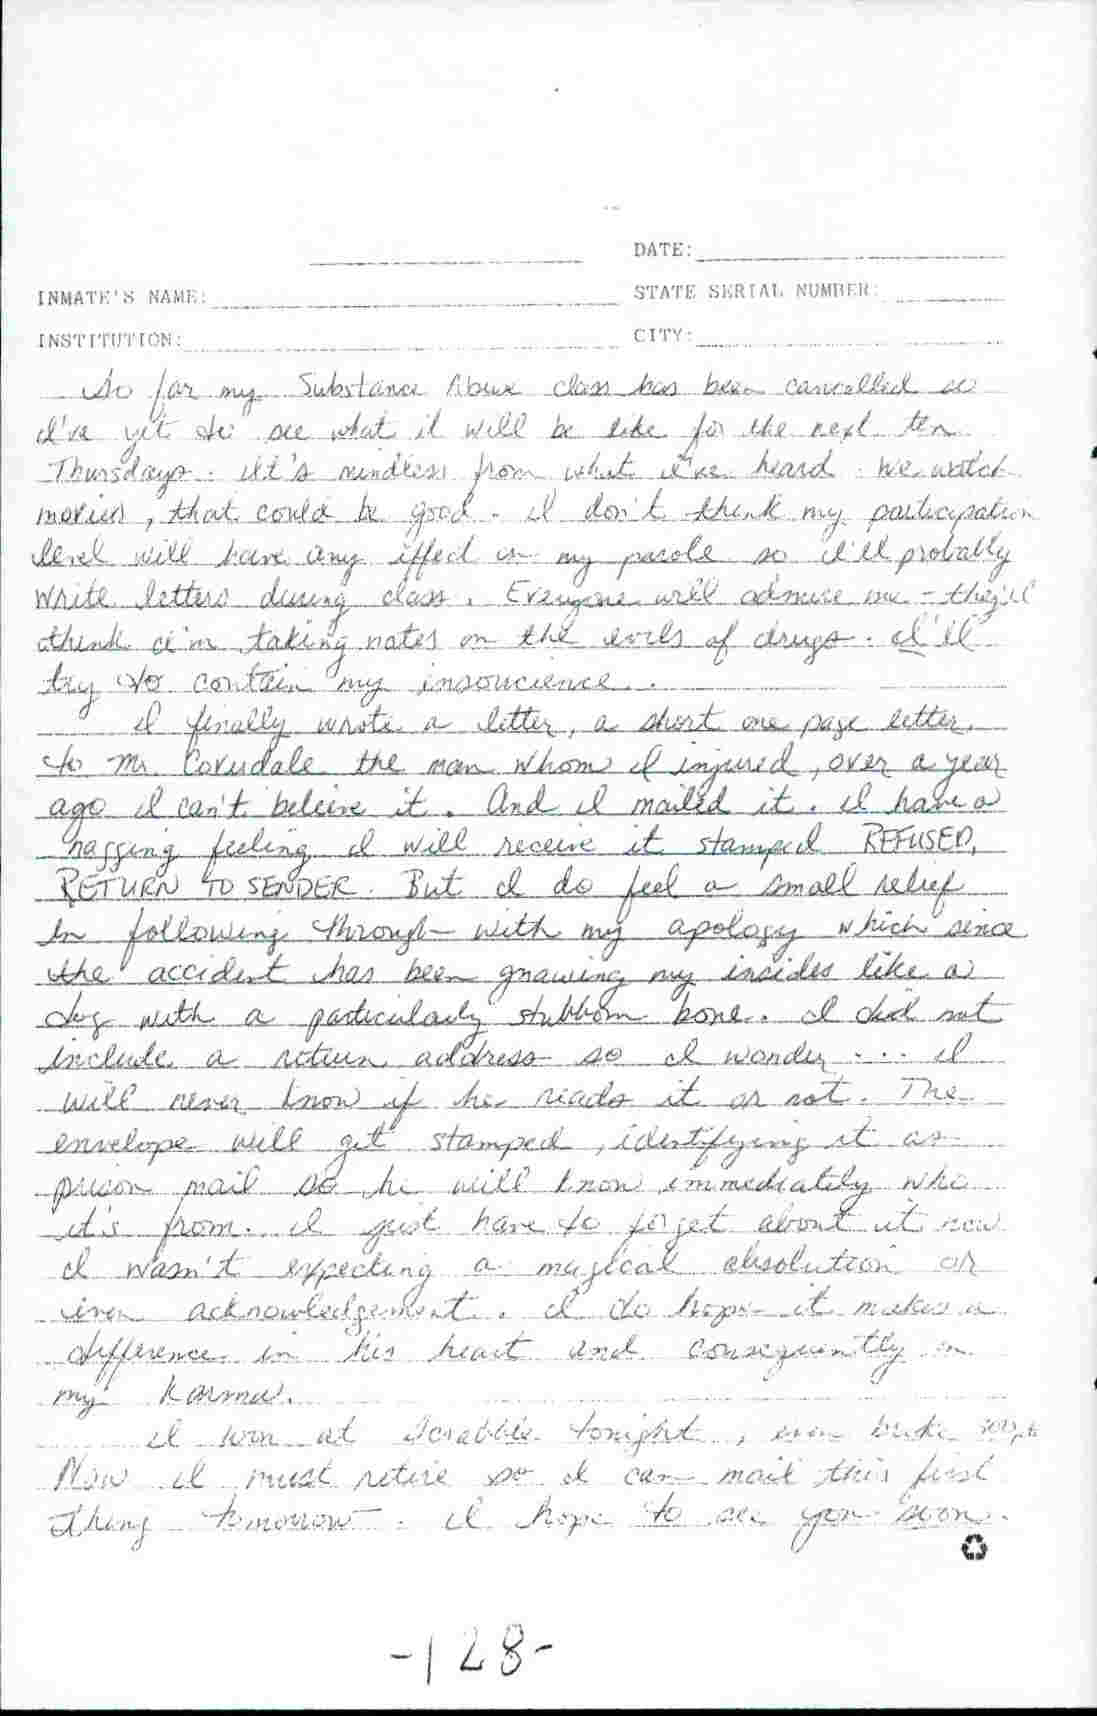 DATE:
INMATE'S NAME:
STATE SERIAL NUMBER:
INSTITUTION:
CITY:
So far my Substance Abuse class has been cancelled so
I've yet to see what it will be like for the next ten
Thursdays. It's mindless from what I've heard. We watch
movies, that could be good. I don't think my participation
level will have any effect on my parole so I'll probably
write letters during class. Everyone will admire me - they'll
think I'm taking notes on the evils of drugs. I'll
try to contain my insoucience.
I finally wrote a letter, a short one page letter,
to Mr. Coverdale the man whom I injured, over a year
ago I can't beleive it. And I mailed it. I have a
nagging feeling I will receive it stamped REFUSED,
RETURN TO SENDER. But I do feel a small relief
in following through with my apology which since
the accident has been gnawing my insides like a
dog with a particularly stubborn bone. I did not
include a return address so I wonder .... I
will never know if he reads it or not. The
envelope will get stamped, identifying it as
prison mail so he will know immediately who
it's from. I just have to forget about it now
I wasn't expecting a magical absolution or
even acknowledgement. I do hope it makes a
difference in his heart and consequently in
my karma.
I won at Scrabble tonight, even broke
Now I must retire so I can mail this first
thing tomorrow. I hope to see you soon.
-128-